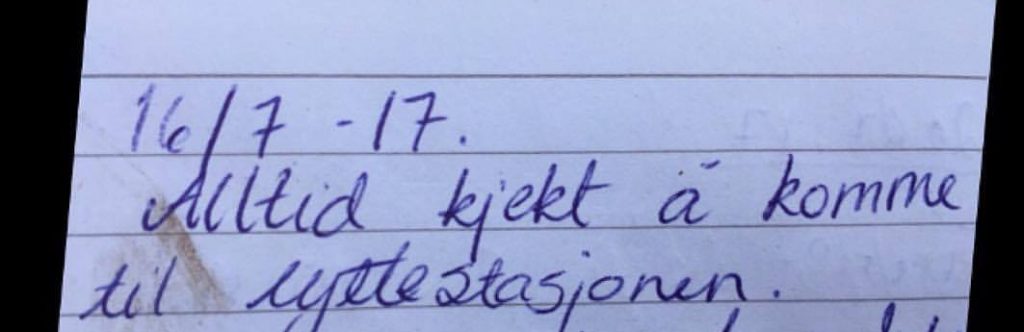 16/7 -17.
Alltid kjekt å komme
til lyttestasjonen.